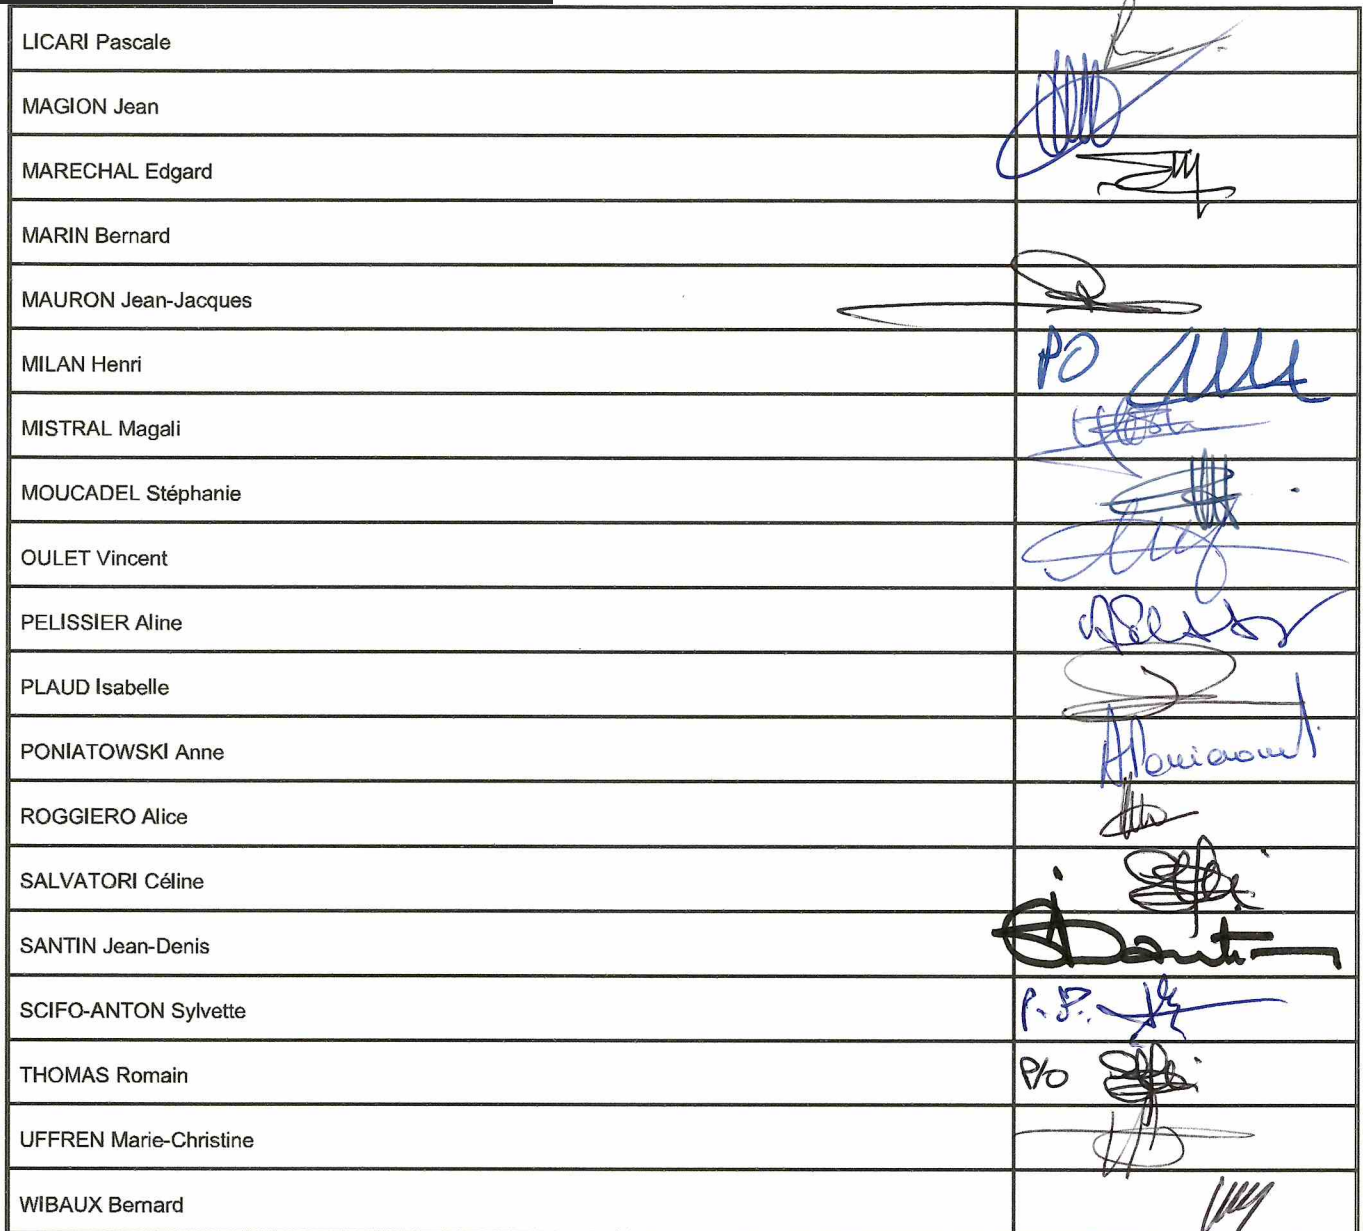 LICARI Pascale
MAGION Jean
MARECHAL Edgard
MARIN Bernard
MAURON Jean-Jacques
MILAN Henri PO
MISTRAL Magali
MOUCADEL Stéphanie
OULET Vincent
PELISSIER Aline
PLAUD Isabelle
PONIATOWSKI Anne
ROGGIERO Alice
SALVATORI Céline
SANTIN Jean-Denis
SCIFO-ANTON Sylvette
THOMAS Romain P/O
UFFREN Marie-Christine
WIBAUX Bernard